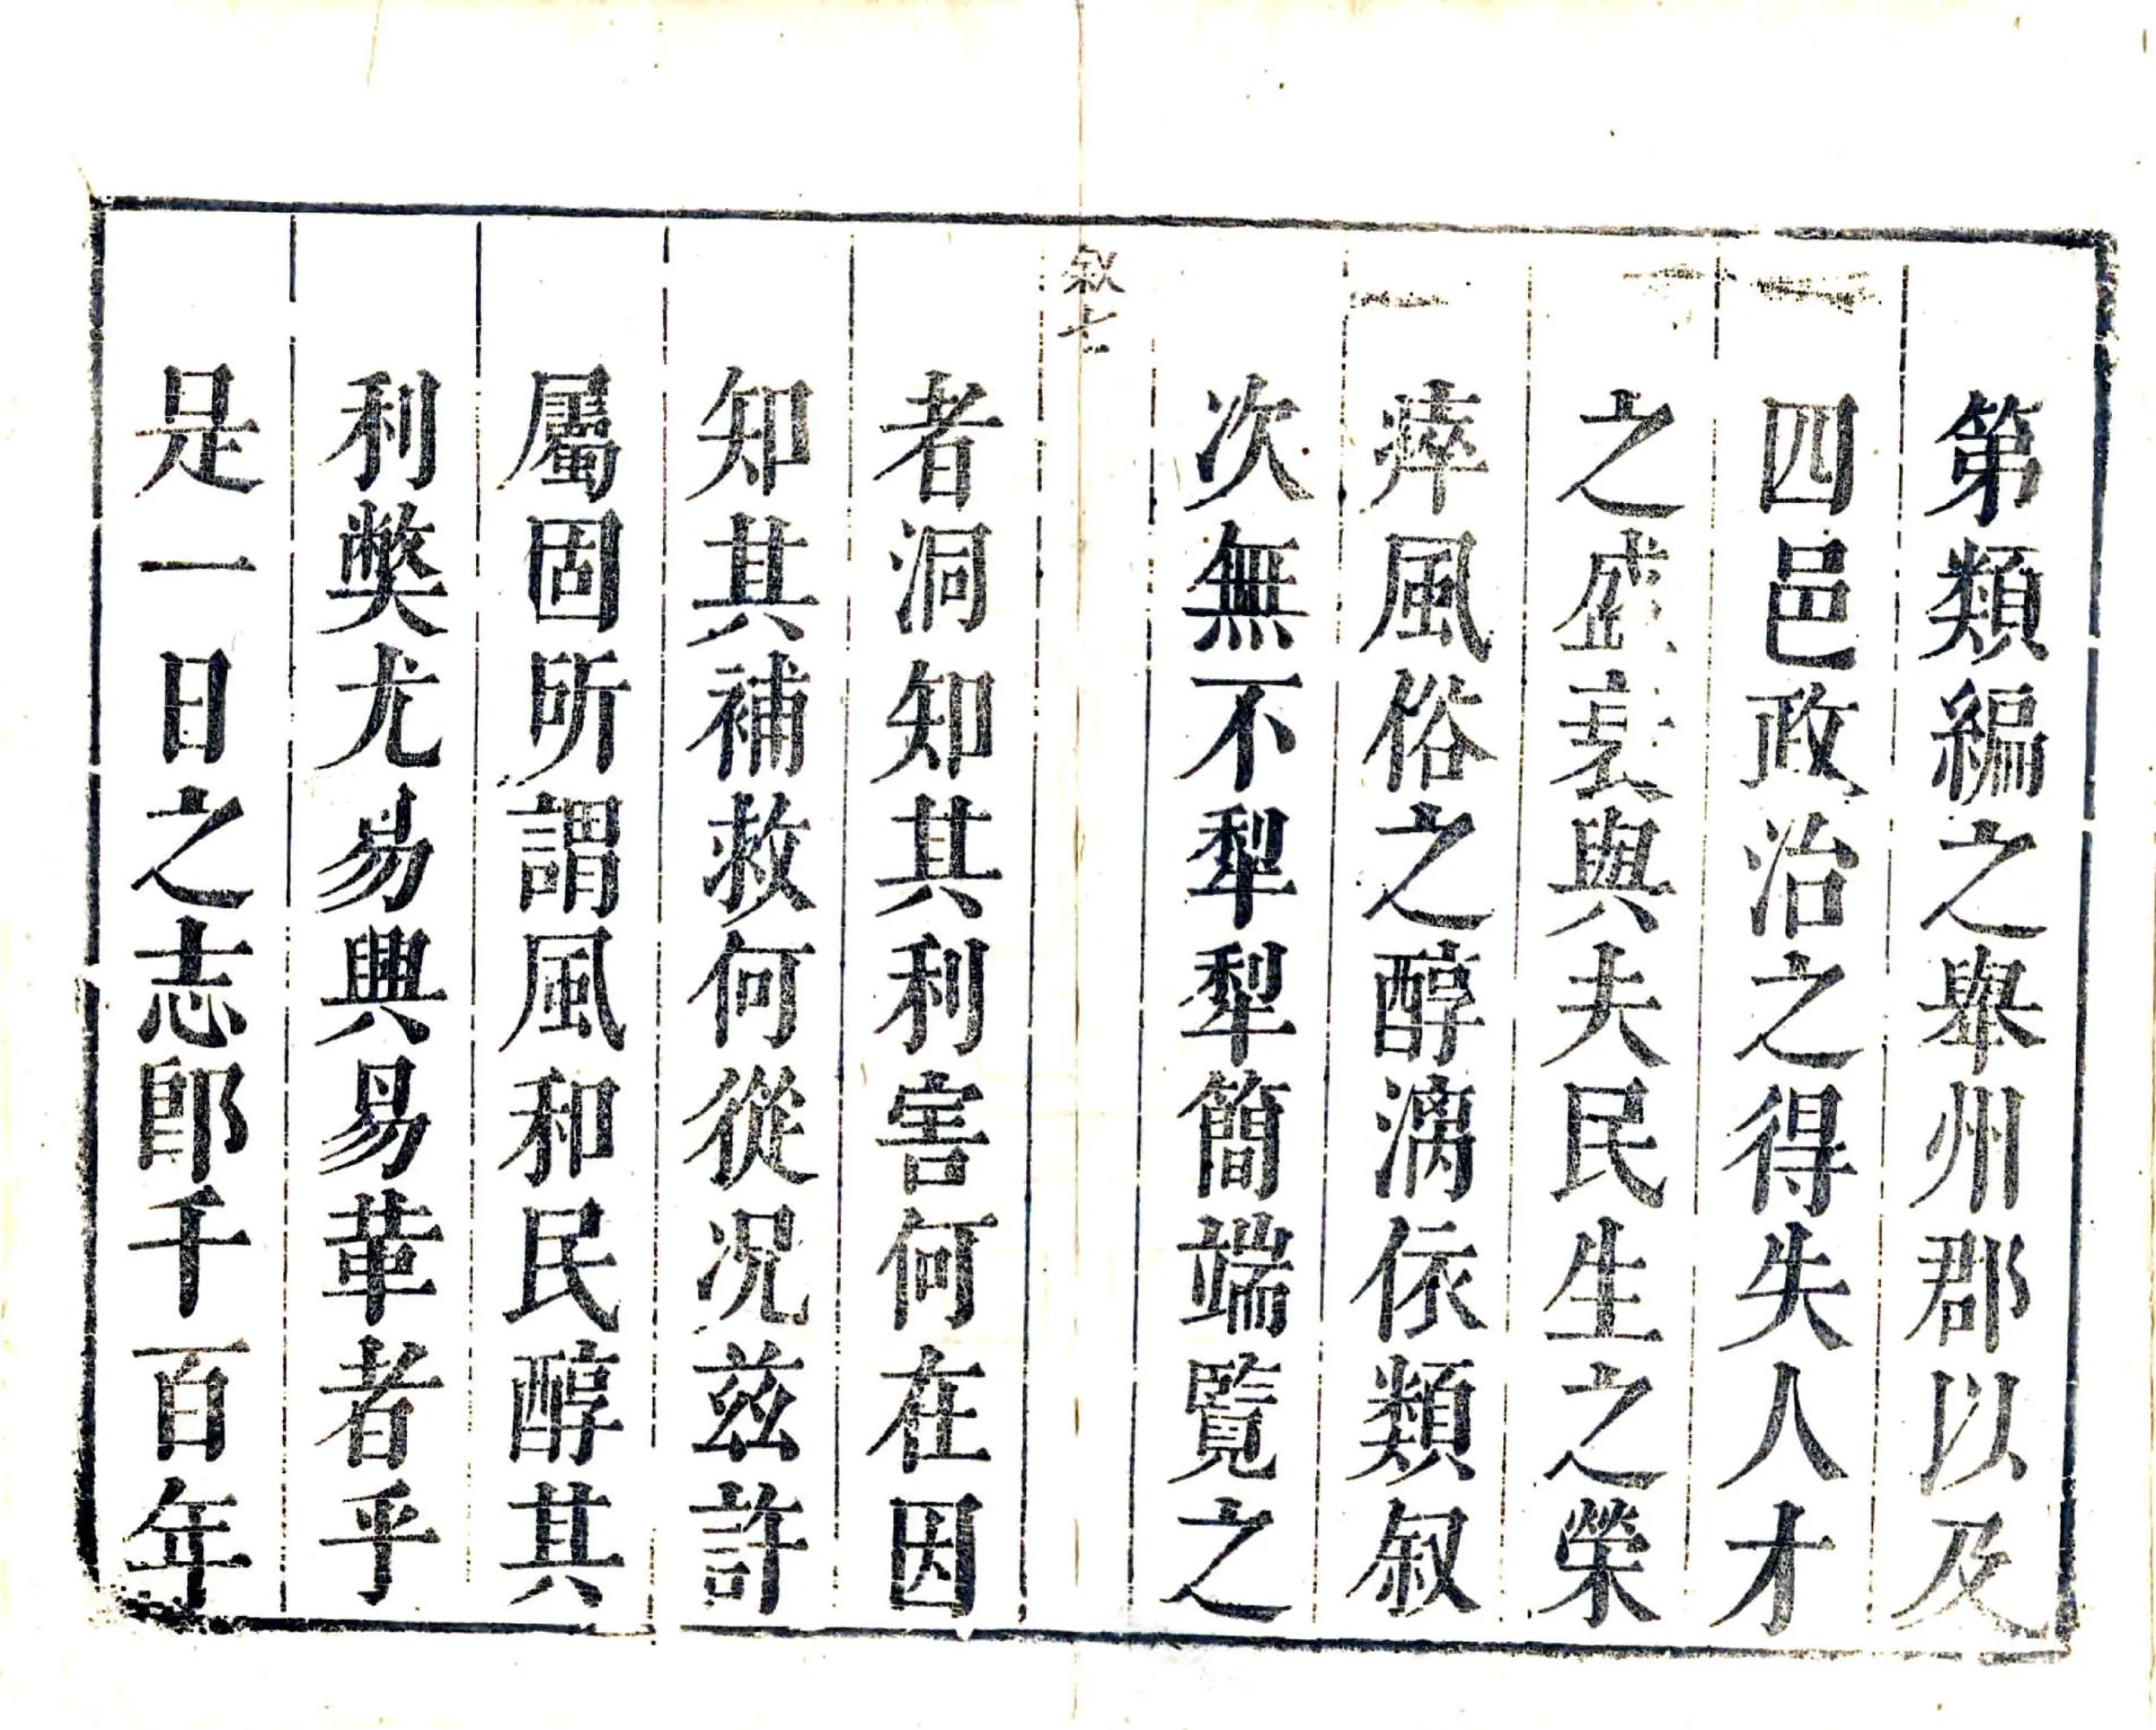 第類編之舉州郡以及
四邑政治之得失人才
之盛衰與夫民生之榮
瘁風俗之醇漓依類叙
次無不犁犁簡端覽之
叙七
者洞知其利害何在因
知其補救何從况茲許
屬固所謂風和民醇其
利獘尤易興易革者乎
是一日之志郎千百年